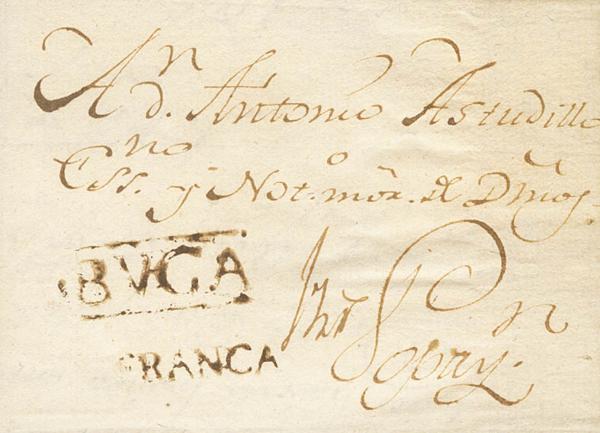 A n
d. Antonio Astudillo
Ess.no y Not.o mōr. de Dm̃os.
BVGA
FRANCA
Popay.n